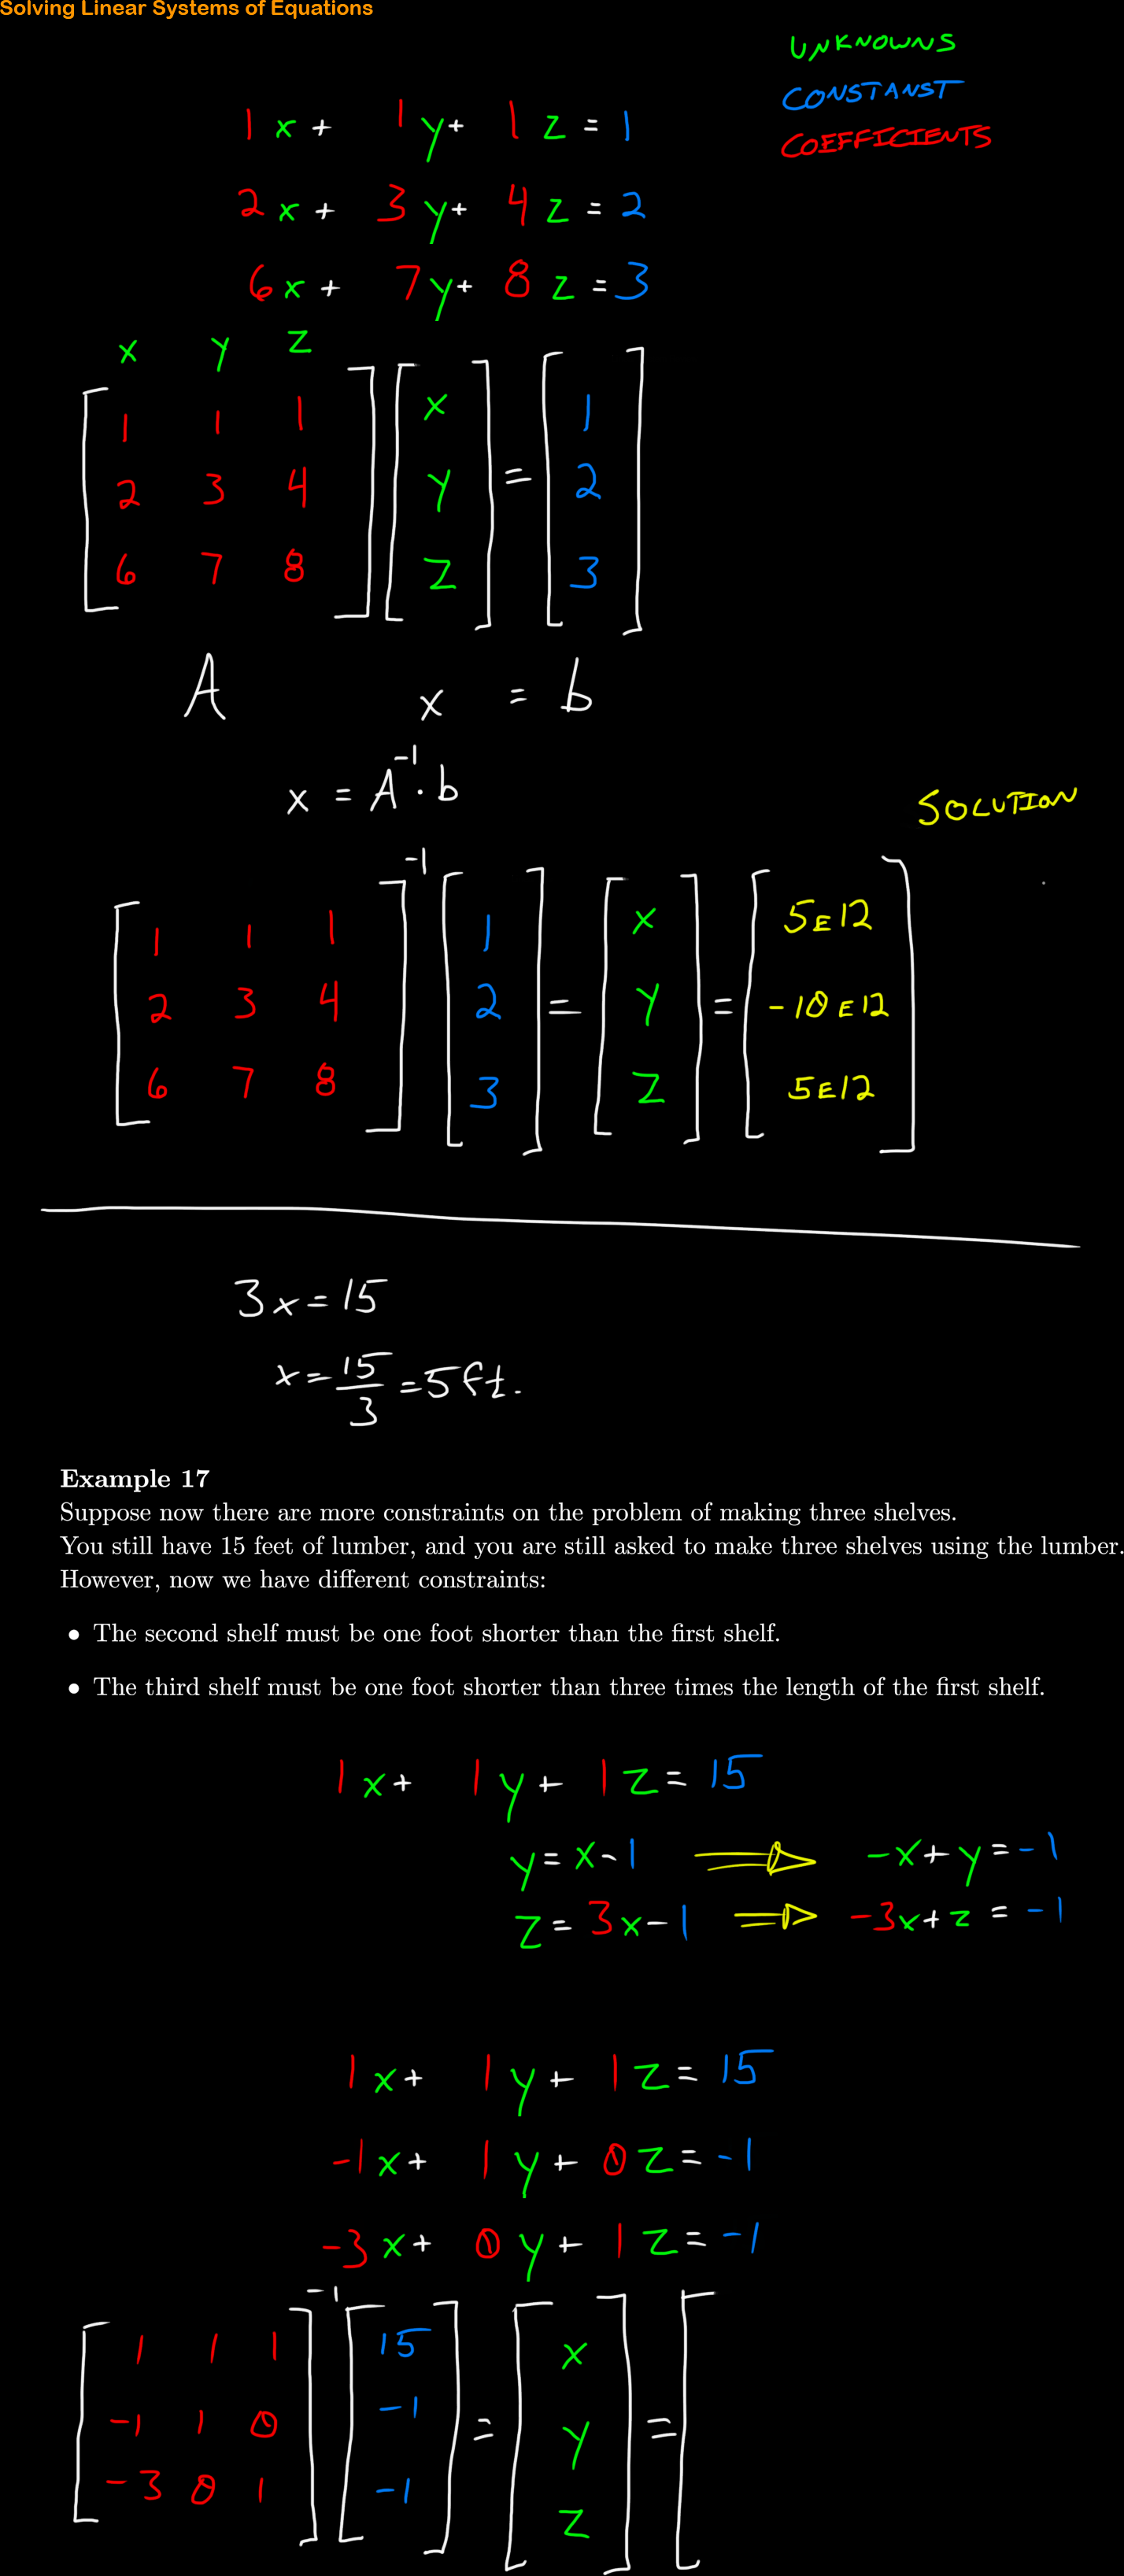 Solving Linear Systems of Equations
UNKNOWNS
CONSTANST
COEFFICIENTS
1x + 1y + 1z = 1
2x + 3y + 4z = 2
6x + 7y + 8z = 3
x y z
[1 1 1] [x] = [1]
[2 3 4] [y] = [2]
[6 7 8] [z] = [3]
A x = b
x = A⁻¹·b
SOLUTION
[1 1 1]⁻¹ [1] = [x] = [5E12]
[2 3 4] [2] = [y] = [-10E12]
[6 7 8] [3] = [z] = [5E12]
3x = 15
x = 15/3 = 5 ft.
Example 17
Suppose now there are more constraints on the problem of making three shelves.
You still have 15 feet of lumber, and you are still asked to make three shelves using the lumber.
However, now we have different constraints:
• The second shelf must be one foot shorter than the first shelf.
• The third shelf must be one foot shorter than three times the length of the first shelf.
1x + 1y + 1z = 15
y = x - 1 ⇒ -x + y = -1
z = 3x - 1 ⇒ -3x + z = -1
1x + 1y + 1z = 15
-1x + 1y + 0z = -1
-3x + 0y + 1z = -1
[1 1 1]⁻¹ [15] = [x] = [
[-1 1 0] [-1] = [y] = [
[-3 0 1] [-1] = [z] = [